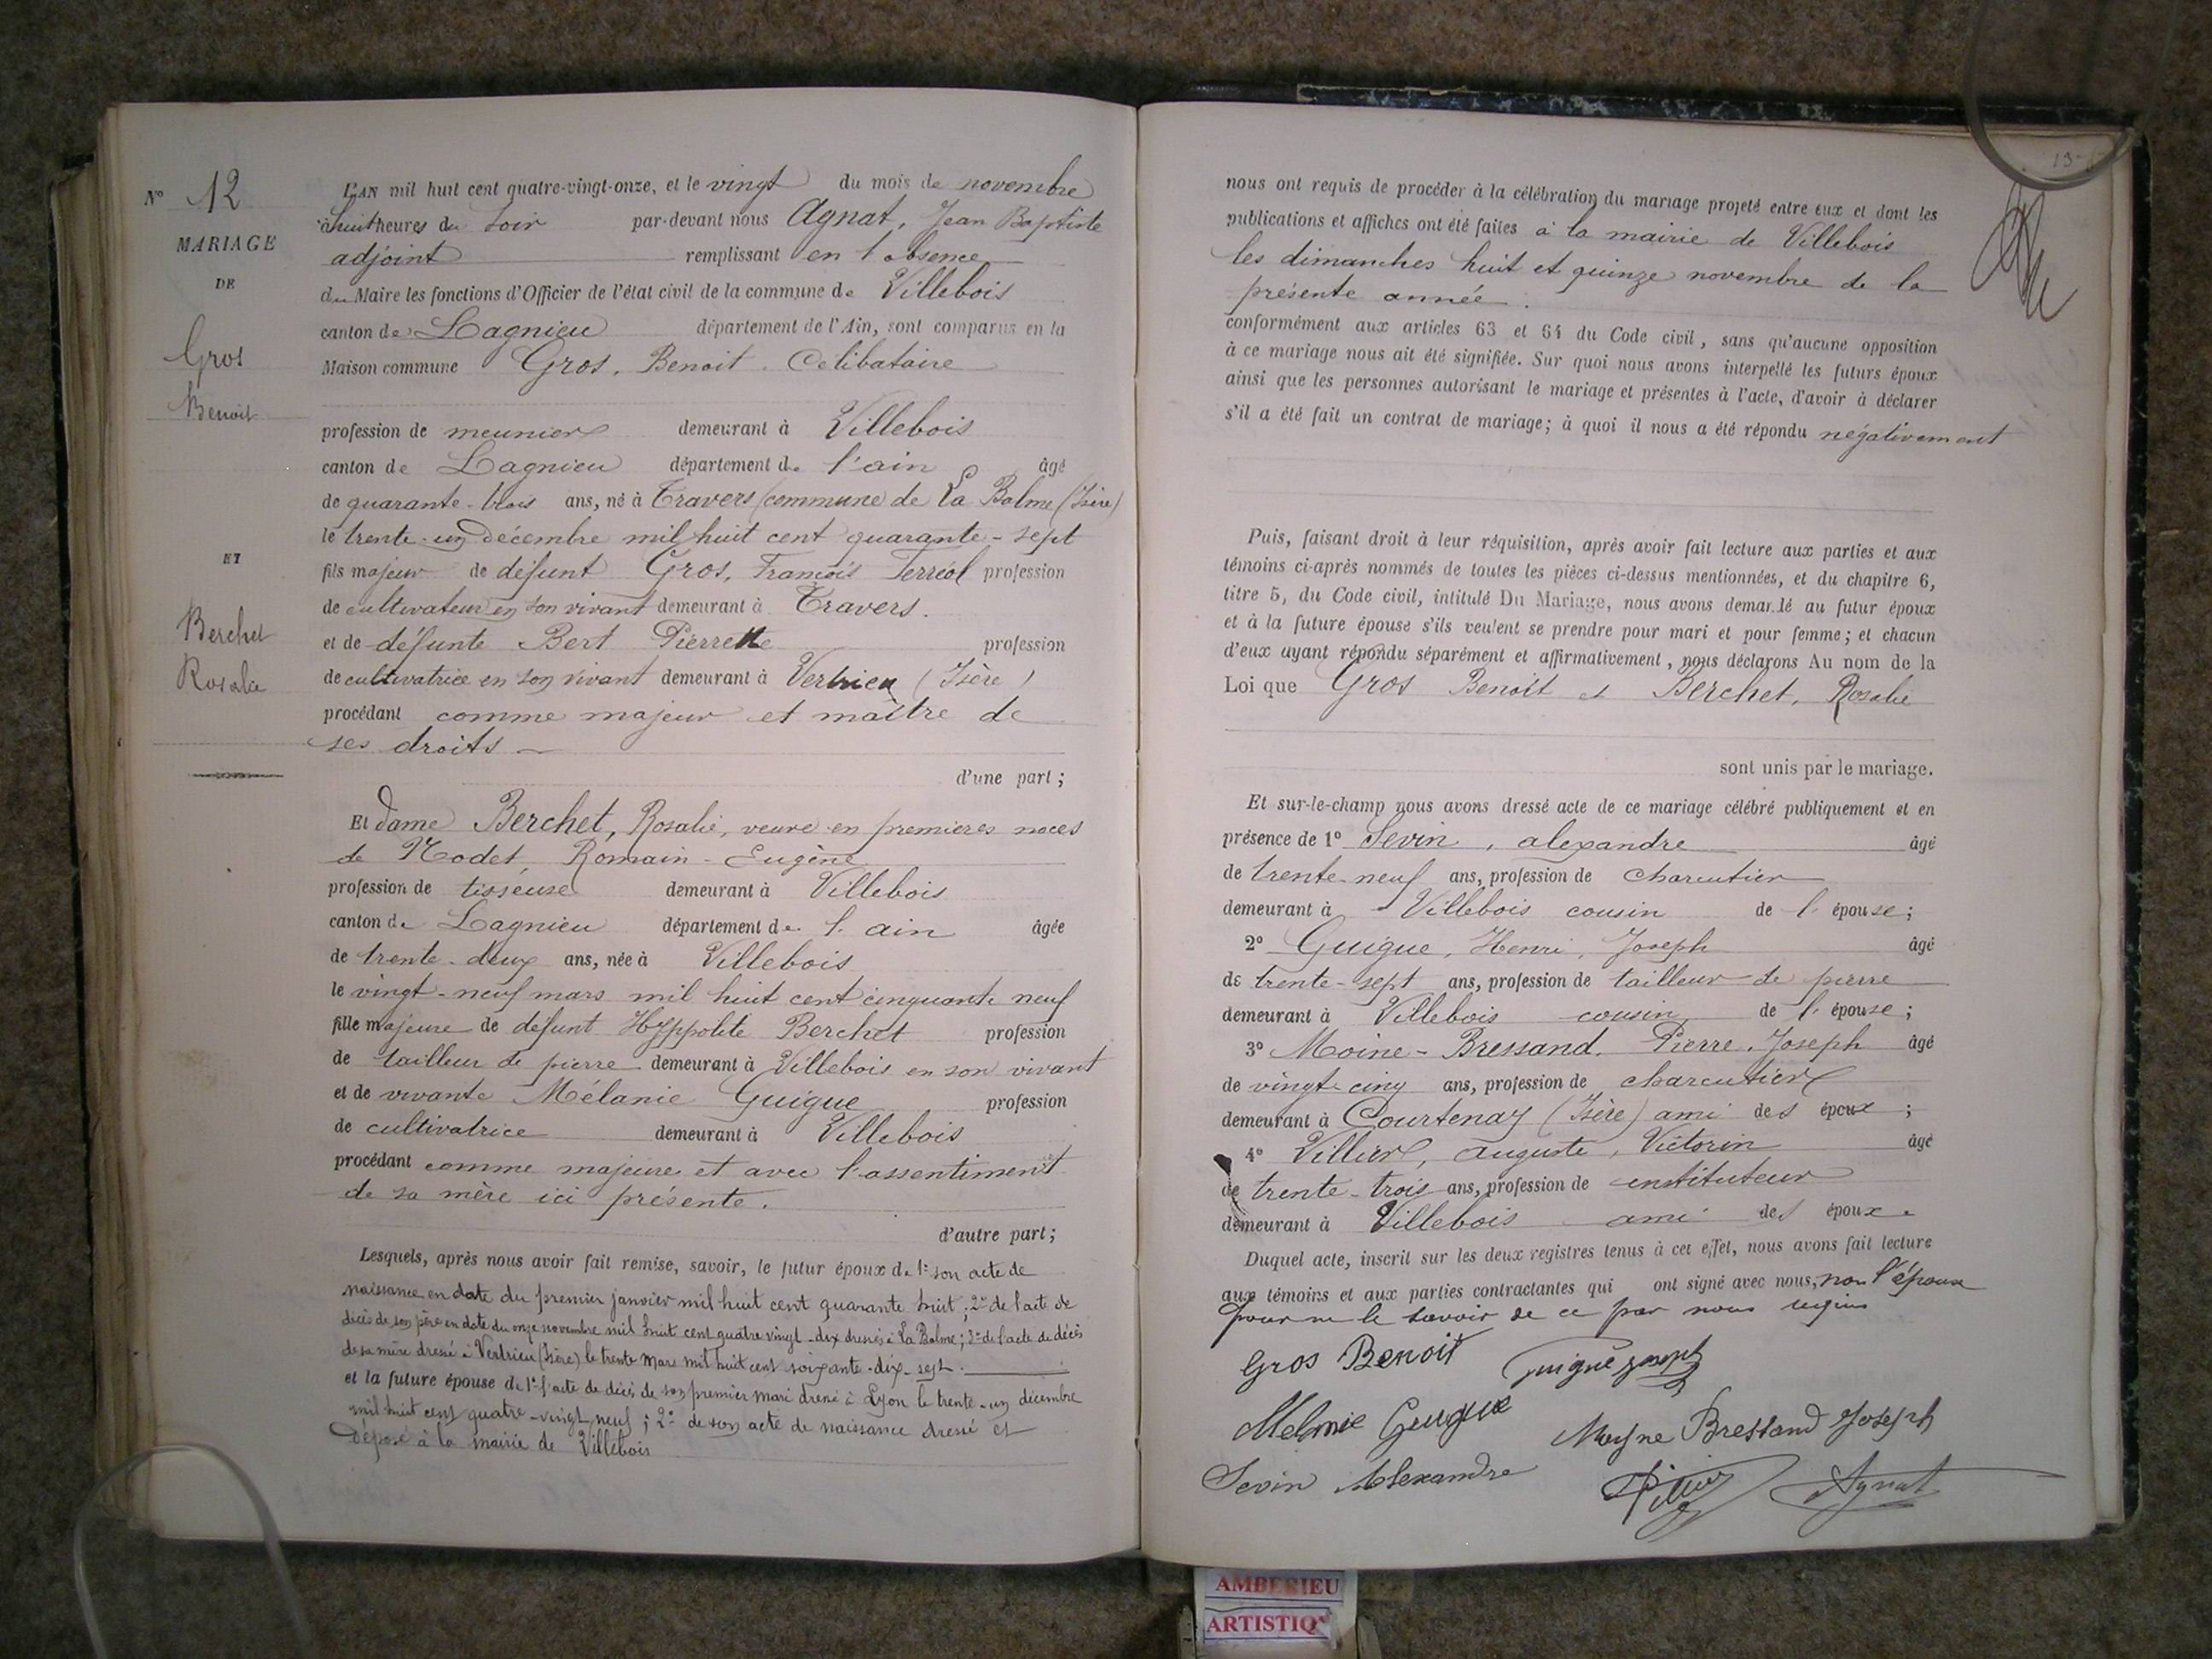 Nº 12
MARIAGE
DE
Gros
Benoit
ET
Berchet
Rosalie
L'AN mil huit cent quatre-vingt-onze, et le vingt du mois de novembre
à huit heures du soir par-devant nous Agnat, Jean Baptiste
adjoint remplissant en l'absence
du Maire les fonctions d'Officier de l'état civil de la commune de Villebois
canton de Lagnieu département de l'Ain, sont comparus en la
Maison commune Gros, Benoit. Célibataire
profession de meunier demeurant à Villebois
canton de Lagnieu département de l'ain âgé
de quarante-trois ans, né à Travers (commune de La Balme (Isère)
le trente-un décembre mil huit cent quarante-sept
fils majeur de défunt Gros, François Ferréol profession
de cultivateur en son vivant demeurant à Travers.
et de défunte Bert Pierrette profession
de cultivatrice en son vivant demeurant à Vertrieu (Isère)
procédant comme majeur et maître de
ses droits
d'une part ;
Et dame Berchet, Rosalie, veuve en premières noces
de Nodet, Romain-Eugène
profession de tisseuse demeurant à Villebois
canton de Lagnieu département de l'ain âgée
de trente-deux ans, née à Villebois
le vingt-neuf mars mil huit cent cinquante neuf
fille majeure de défunt Hyppolite Berchet profession
de tailleur de pierre demeurant à Villebois en son vivant
et de vivante Mélanie Guigue profession
de cultivatrice demeurant à Villebois
procédant comme majeure et avec l'assentiment
de sa mère ici présente.
d'autre part ;
Lesquels, après nous avoir fait remise, savoir, le futur époux de 1º son acte de
naissance en date du premier janvier mil huit cent quarante huit ; 2º de l'acte de
décès de son père en date du onze novembre mil huit cent quatre vingt-dix dressé à La Balme ; 3º de l'acte de décès
de sa mère dressé à Vertrieu (Isère) le trente mars mil huit cent soixante-dix-sept.
et la future épouse de 1º l'acte de décès de son premier mari dressé à Lyon le trente-un décembre
mil huit cent quatre-vingt neuf ; 2º de son acte de naissance dressé et
déposé à la mairie de Villebois
nous ont requis de procéder à la célébration du mariage projeté entre eux et dont les
publications et affiches ont été faites à la mairie de Villebois
les dimanches huit et quinze novembre de la
présente année.
conformément aux articles 63 et 64 du Code civil, sans qu'aucune opposition
à ce mariage nous ait été signifiée. Sur quoi nous avons interpellé les futurs époux
ainsi que les personnes autorisant le mariage et présentes à l'acte, d'avoir à déclarer
s'il a été fait un contrat de mariage ; à quoi il nous a été répondu négativement
Puis, faisant droit à leur réquisition, après avoir fait lecture aux parties et aux
témoins ci-après nommés de toutes les pièces ci-dessus mentionnées, et du chapitre 6,
titre 5, du Code civil, intitulé Du Mariage, nous avons demandé au futur époux
et à la future épouse s'ils veulent se prendre pour mari et pour femme ; et chacun
d'eux ayant répondu séparément et affirmativement, nous déclarons Au nom de la
Loi que Gros Benoit et Berchet, Rosalie
sont unis par le mariage.
Et sur-le-champ nous avons dressé acte de ce mariage célébré publiquement et en
présence de 1º Sevin, alexandre âgé
de trente-neuf ans, profession de charcutier
demeurant à Villebois cousin de l'épouse ;
2º Guigue, Henri, Joseph âgé
de trente-sept ans, profession de tailleur de pierre
demeurant à Villebois cousin de l'épouse ;
3º Moine-Bressand, Pierre, Joseph âgé
de vingt-cinq ans, profession de charcutier
demeurant à Courtenay (Isère) ami des époux ;
4º Villier, auguste, Victorin âgé
de trente-trois ans, profession de instituteur
demeurant à Villebois ami des époux.
Duquel acte, inscrit sur les deux registres tenus à cet effet, nous avons fait lecture
aux témoins et aux parties contractantes qui ont signé avec nous, non l'épouse
pour ne le savoir de ce par nous requise
Gros Benoit Guigue Joseph
Melanie Guigue
Moyne Bressand Joseph
Sevin Alexandre Villier Agnat
AMBERIEU
ARTISTIQ